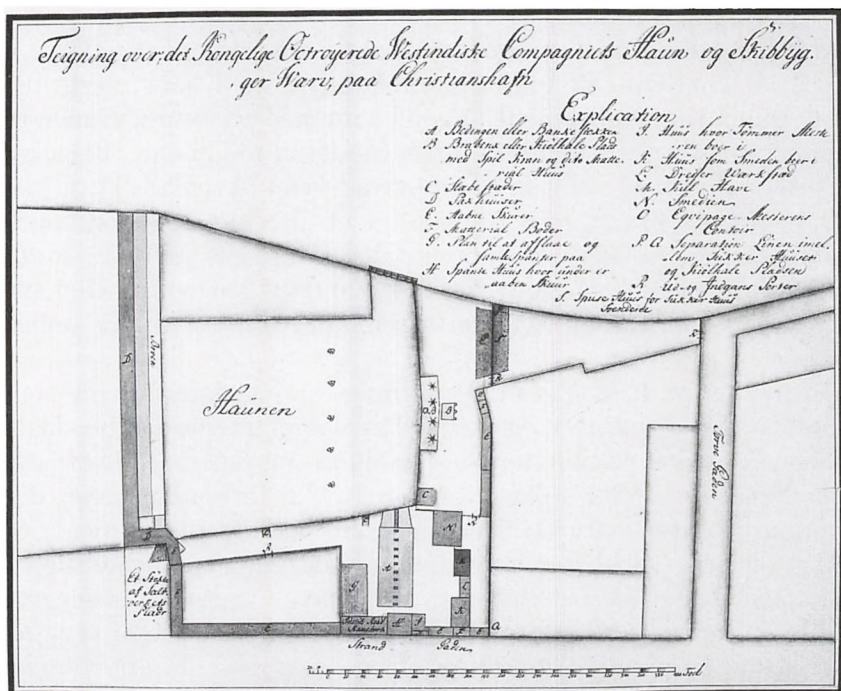 Teigning over, det Kongelige Octroyerede Westindiske Compagniets Haün og Skibbÿg.
ger Wærv, paa Christianshafn
Explication
A Bedingen eller Banke stokken
B Brabænk eller Kiølhale Plads
med Spil Kran og dito Matte.
rial Huus
C
D Pakhuüser
E. Aabne Skurer
F. Matterial Boder
G. Plan til at afslaae og
samle Spanter paa
H Spante Huus hvor under er
aaben Skuur
I. Huüs hvor Tømmer Meste
ren boer i
K Huüs som Smeden boer i
L Dreÿer Værksted
M. Have
N. Smedien
O Eqvipage Mesterens
Contoir
P. Q Separation Linen imel.
lem Huuset
og Kiølhale Pladsen
R Ud og Indgans Porter
S. Huüs for Huus
D.
Haünen
Torve Gaden
Et Støkke
af Salt
verkets
Plads
Strand Gaden